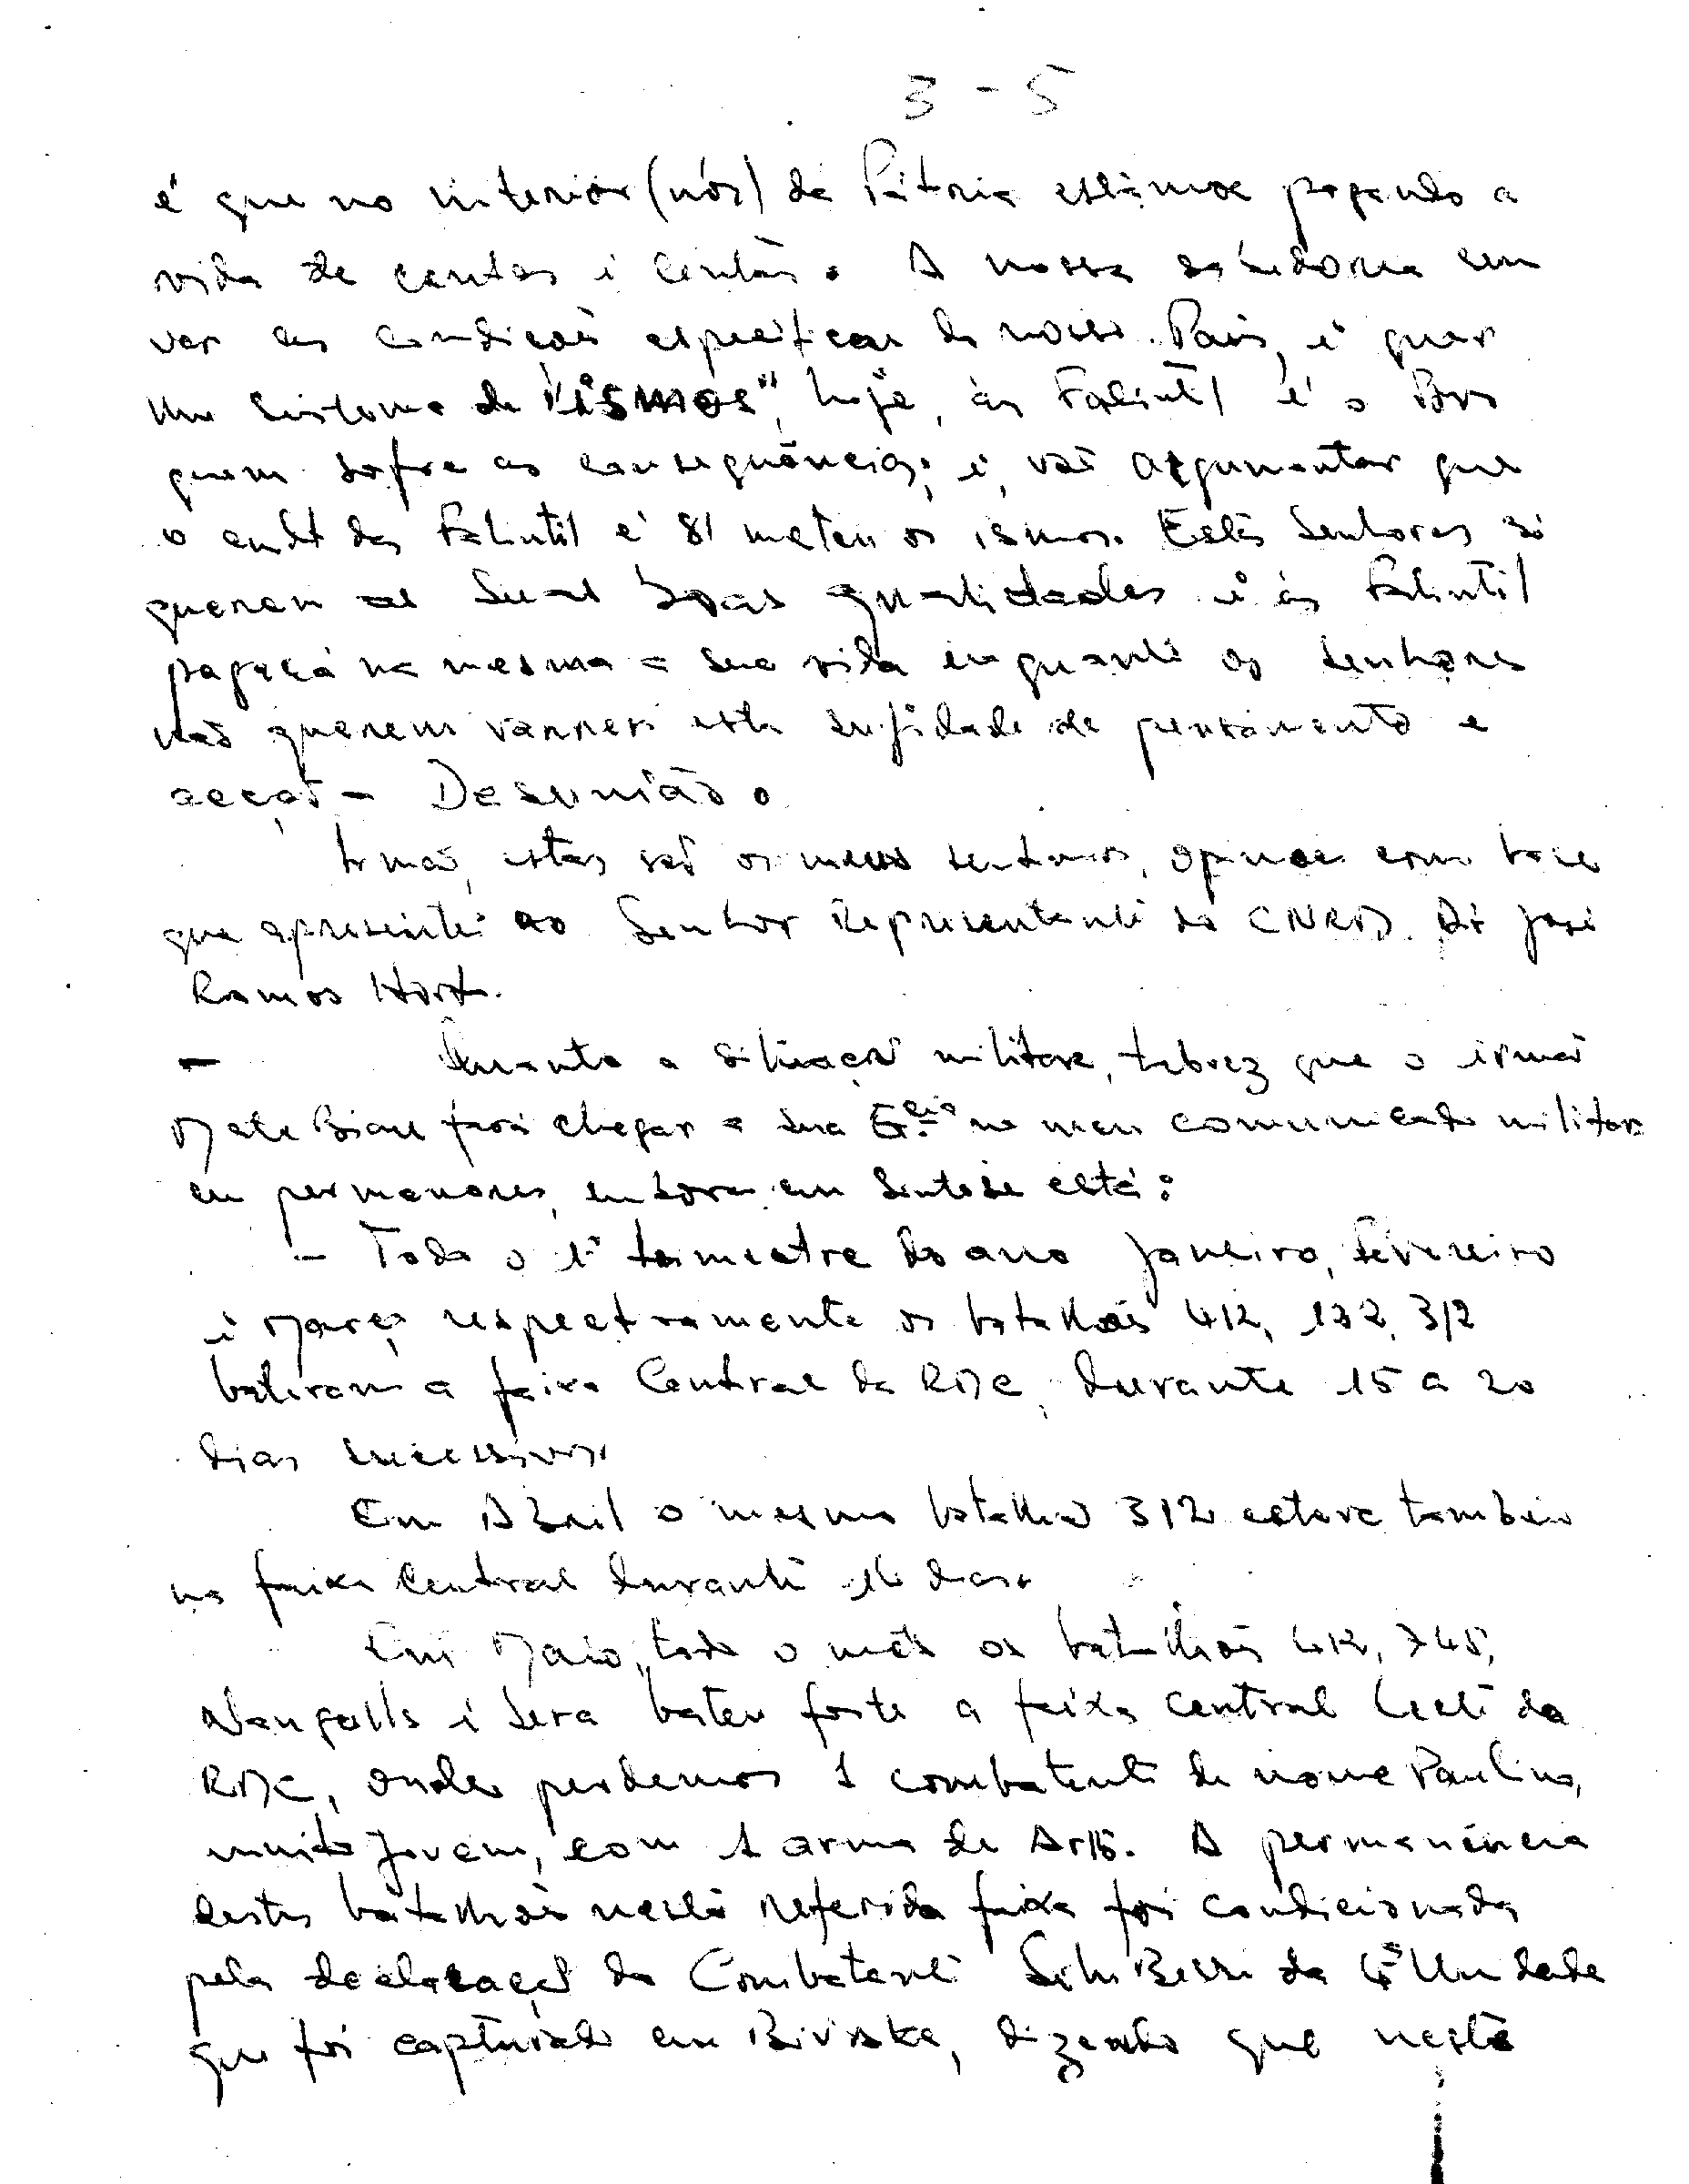 3 - 5
é que no interior (nós) da Pátria estámos pagando a
vida de centos i centos. A nossa sabedoria sem
ver as condições especificas do nosso Pais, é quer
um sistema de "ismos", hoje, ás Falintil é o Povo
quem sofre as consequências; é, vai argumentar que
o cmdt das Falintil é 81 meteu os ismos. Estes Senhores só
querem as suas boas qualidades é ás Falintil
pagará na mesma a sua vida enquanto os senhores
não querem varrer esta sujidade de pensamento e
acção - Desunião.
Irmão, estas são os meus com base
que apresentei ao Senhor Representante do CNRM. Dr José
Ramos Horta.
- Quanto a situação militar, talvez que o irmão
Mate Bian fará chegar a sua Ex.cia no meu comunicado militar
em permenores, embora em sintese está:
- Todo o 1º trimestre do ano Janeiro, Fevereiro
é Março respectivamente os batalhões 412, 132, 312
bateram a faixa Central da RMC, durante 15 a 20
dias sucessivos.
Em Abril o mesmo batalhão 312 esteve também
na faixa Central durante 16 dias.
Em Maio, todo o mês os batalhões 412, 745,
Nangalls i Sera bateu forte a faixa central Leste da
RMC, onde perdemos 1 combatente de nome Paulino,
muito jovem, com 1 arma de Ar15. A permanência
destes batalhões nesta referida faixa foi condicionada
pela declaração do Combatente da 4ª Unidade
que foi capturado em Bivake, dizendo que neste